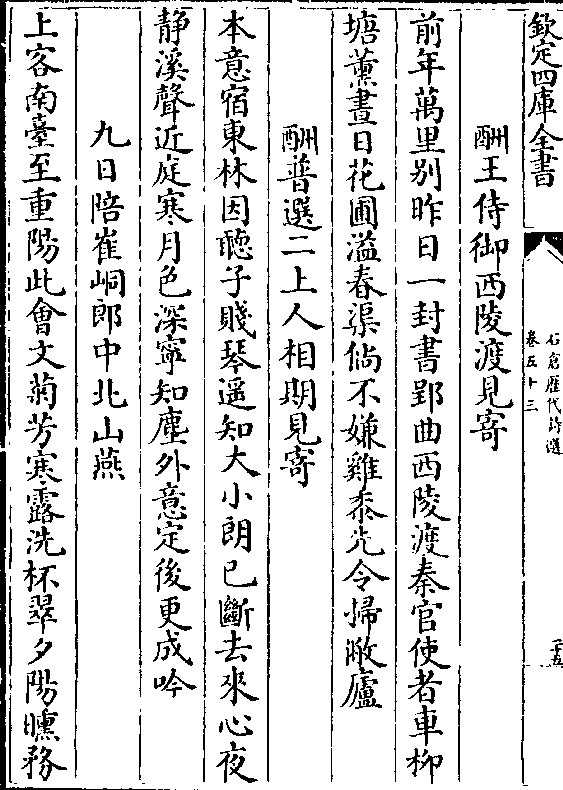 欽定四庫全書
石倉歷代詩選
卷五十三
二十五
酬王侍御西陵渡見寄
前年萬里别昨日一封書郢曲西陵渡秦官使者車柳
塘薰晝日花圃溢春渠倘不嫌雞黍先令掃敝廬
酬普選二上人相期見寄
本意宿東林因聽子賤琴遥知大小朗已斷去來心夜
静溪聲近庭寒月色深寧知塵外意定後更成吟
九日陪崔峒郎中北山燕
上客南臺至重陽此會文菊芳寒露洗杯翠夕陽曛務